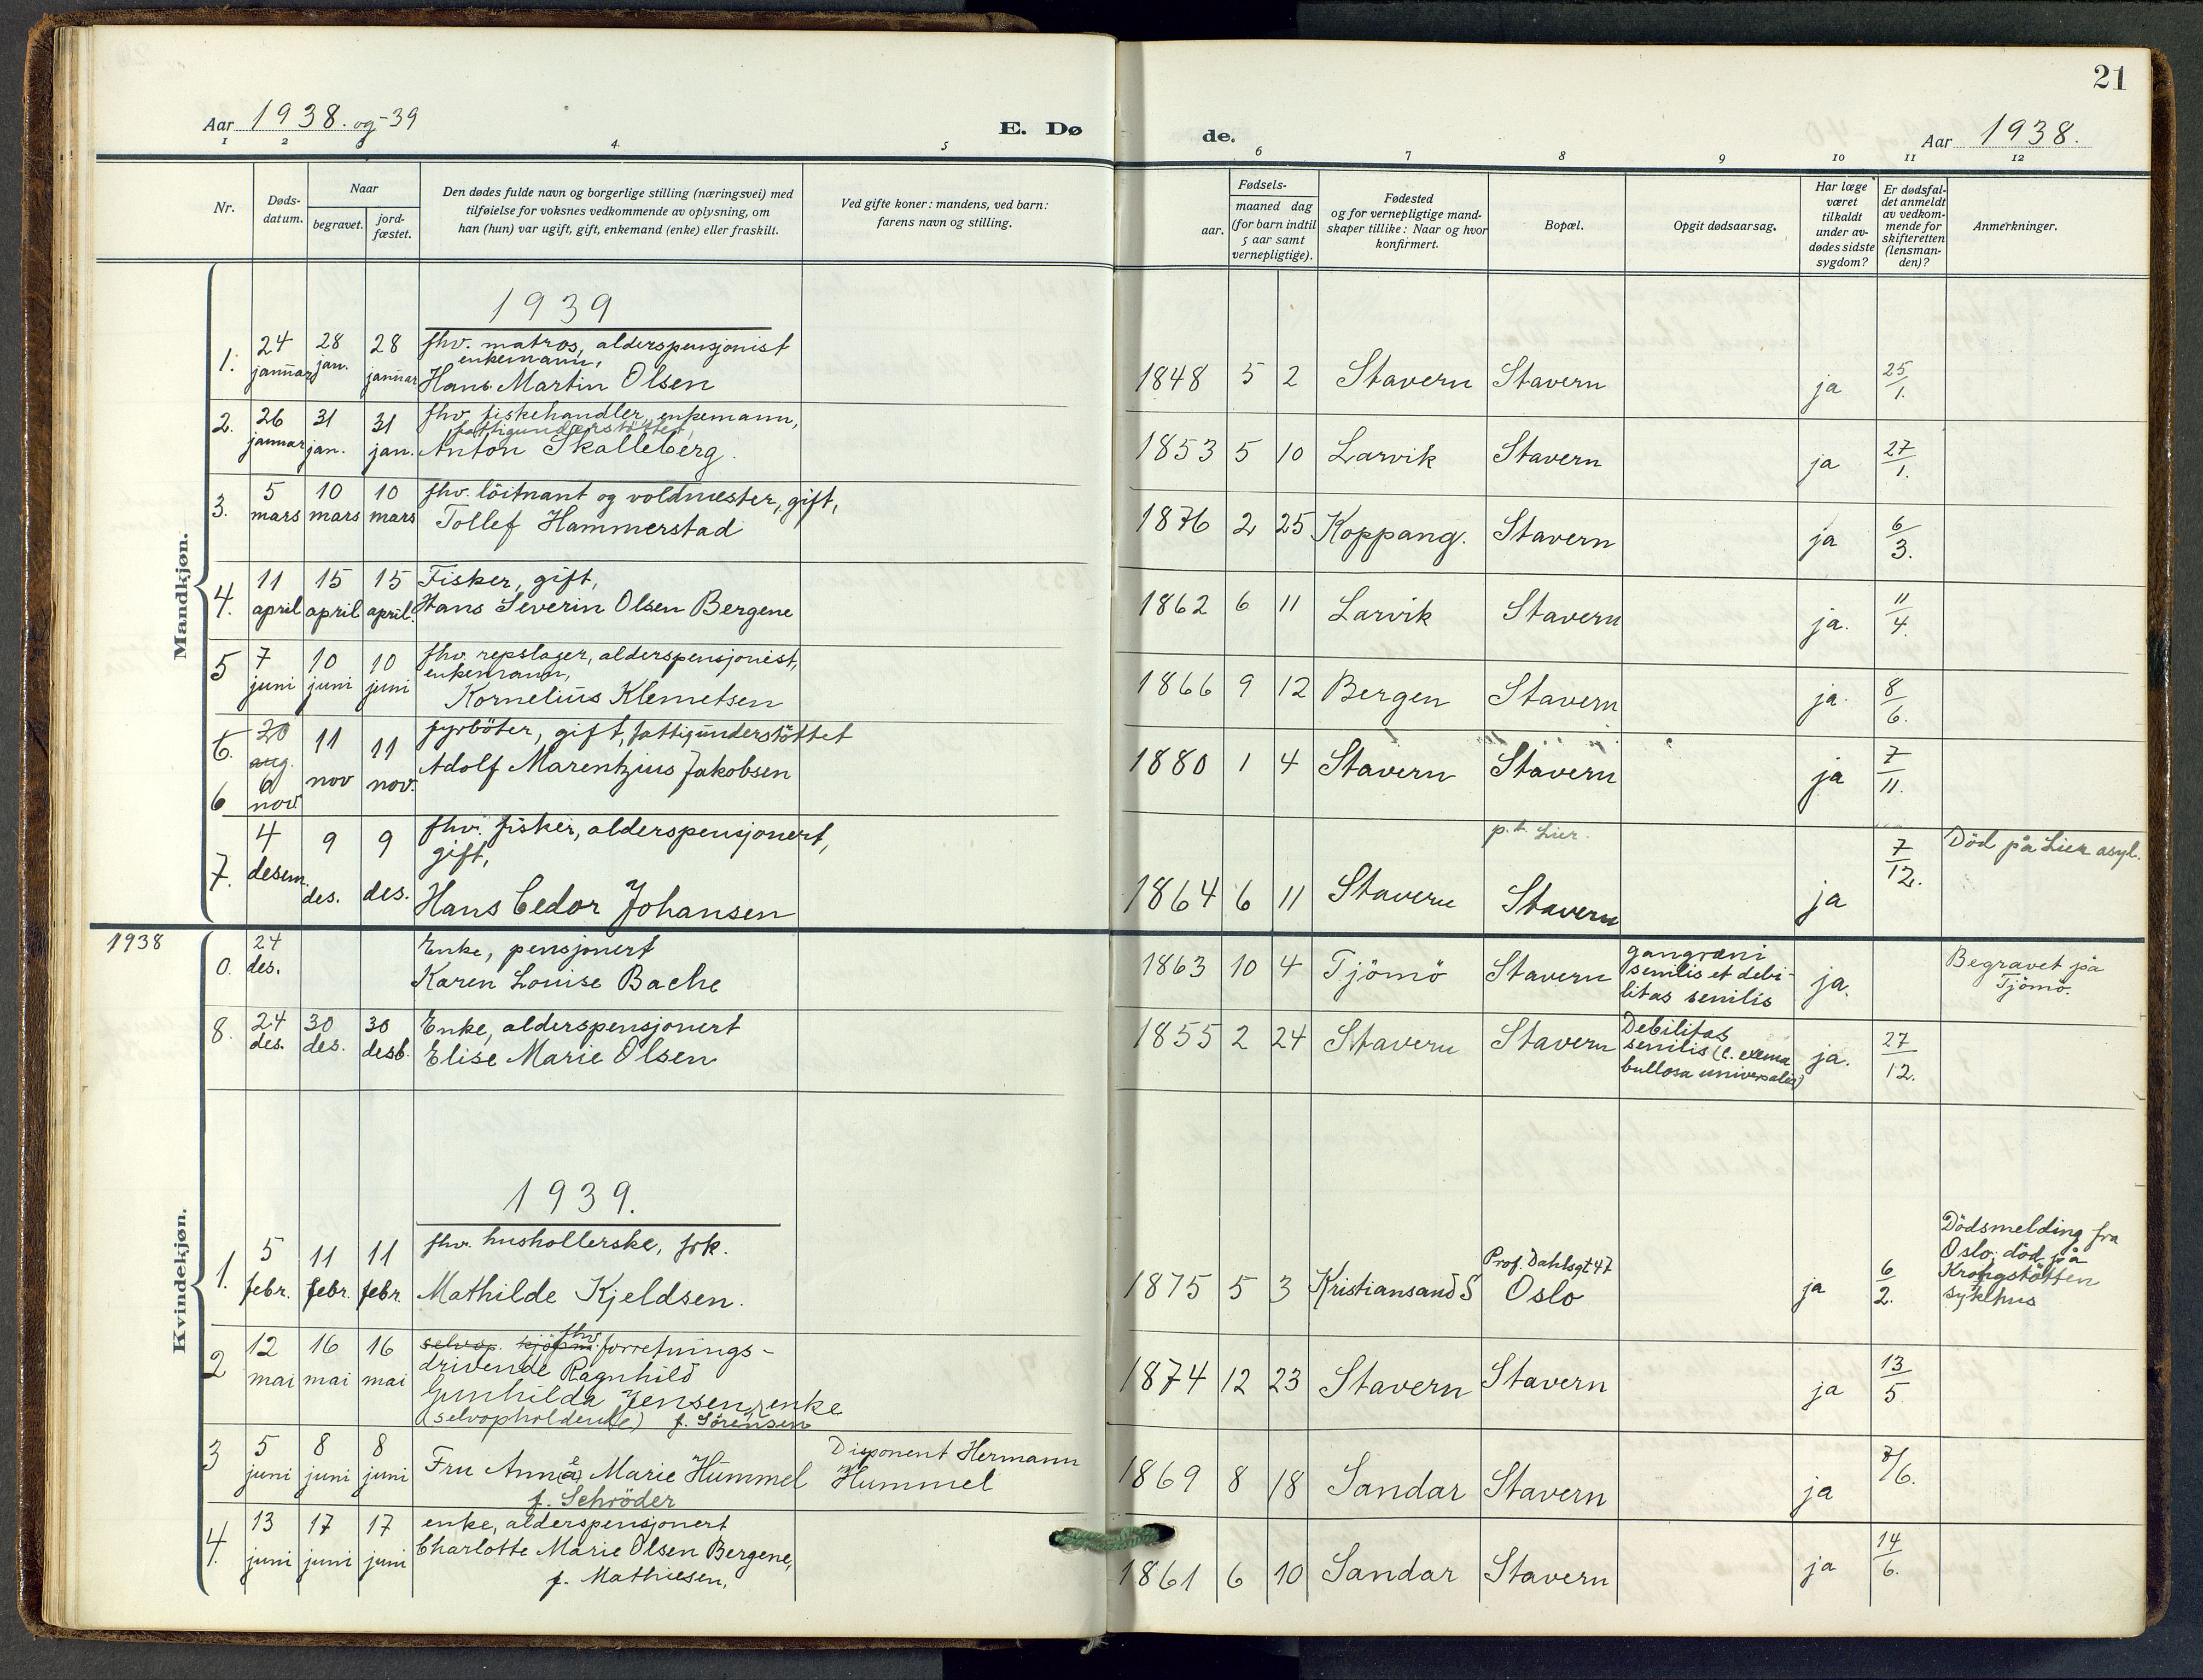 21
Aar 1938. og -39
E. Dø
de.
Aar 1938.
1 2 4 5 6 7 8 9 10 11 12
Nr.
Døds-
datum.
Naar
begravet.
jord-
fæstet.
Den dødes fulde navn og borgerlige stilling (næringsvei) med
tilføielse for voksnes vedkommende av oplysning, om
han (hun) var ugift, gift, enkemand (enke) eller fraskilt.
Ved gifte koner: mandens, ved barn:
farens navn og stilling.
Fødsels-
aar.
maaned dag
(for barn indtil
5 aar samt
vernepligtige).
Fødested
og for vernepligtige mand-
skaper tillike: Naar og hvor
konfirmert.
Bopæl.
Opgit dødsaarsag.
Har læge
været
tilkaldt
under av-
dødes sidste
sygdom?
Er dødsfal-
det anmeldt
av vedkom-
mende for
skifteretten
(lensman-
den)?
Anmerkninger.
Mandkjøn.
1939
1. 24 januar 28 jan. 28 januar
fhv. matros, alderspensjonist
enkemann,
Hans Martin Olsen
1848 5 2 Stavern Stavern ja 25/1.
2. 26 januar 31 jan. 31 jan.
fhv. fiskehandler, enkemann,
fattigunderstöttet,
Anton Skalleberg.
1853 5 10 Larvik Stavern ja 27/1.
3. 5 mars 10 mars 10 mars
fhv. löitnant og voldmester, gift,
Tollef Hammerstad
1876 2 25 Koppang. Stavern ja 6/3.
4. 11 april 15 april 15 april.
Fisker, gift,
Hans Severin Olsen Bergene
1862 6 11 Larvik Stavern ja. 11/4.
5 7 juni 10 juni 10 juni
fhv. repslager, alderspensjonist,
enkemann,
Kornelius Klemetsen
1866 9 12 Bergen Stavern ja. 8/6.
6. 20 aug.
6 6 nov. 11 nov 11 nov.
fyrböter, gift, fattigunderstöttet
Adolf Marentzius Jakobsen
1880 1 4 Stavern Stavern ja 7/11.
7. 4 desem. 9 des. 9 des.
fhv. fisker, alderspensjonert,
gift,
Hans Cedor Johansen
p.t. Lier.
1864 6 11 Stavern Stavern ja 7/12. Död på Lier asyl.
Kvindekjøn.
1938
0. 24 des.
Enke, pensjonert
Karen Louise Bache
1863 10 4 Tjömö Stavern
gangræni
senilis et debi-
litas senilis
ja.
Begravet på
Tjömö.
8. 24 des. 30 des. 30 desb.
Enke, alderspensjonert
Elise Marie Olsen
1855 2 24 Stavern Stavern
Debilitas
senilis (c. exema
bullosa universalis)
ja. 27/12.
1939.
1. 5 febr. 11 febr. 11 febr.
fhv. husholderske, frk.
Mathilde Kjeldsen.
1875 5 3 Kristiansand S
Prof. Dahlsgt 47
Oslo
ja 6/2.
Dödsmelding fra
Oslo: död på
Krohgstötten
sykehus
2 12 mai 16 mai 16 mai
selvop. kjöpm. fhv. forretnings-
drivende Ragnhild
Gunhilda Jensen, enke
(selvopholdende) f. Sörensen
1874 12 23 Stavern Stavern ja 13/5
3 5 juni 8 juni 8 juni
Fru Anna (e) Marie Hummel
f. Schröder
Disponent Hermann
Hummel
1869 8 18 Sandar Stavern ja 7/6.
4. 13 juni 17 juni 17 juni
enke, alderspensjonert
Charlotte Marie Olsen Bergene,
f. Mathiesen,
1861 6 10 Sandar Stavern ja 14/6.